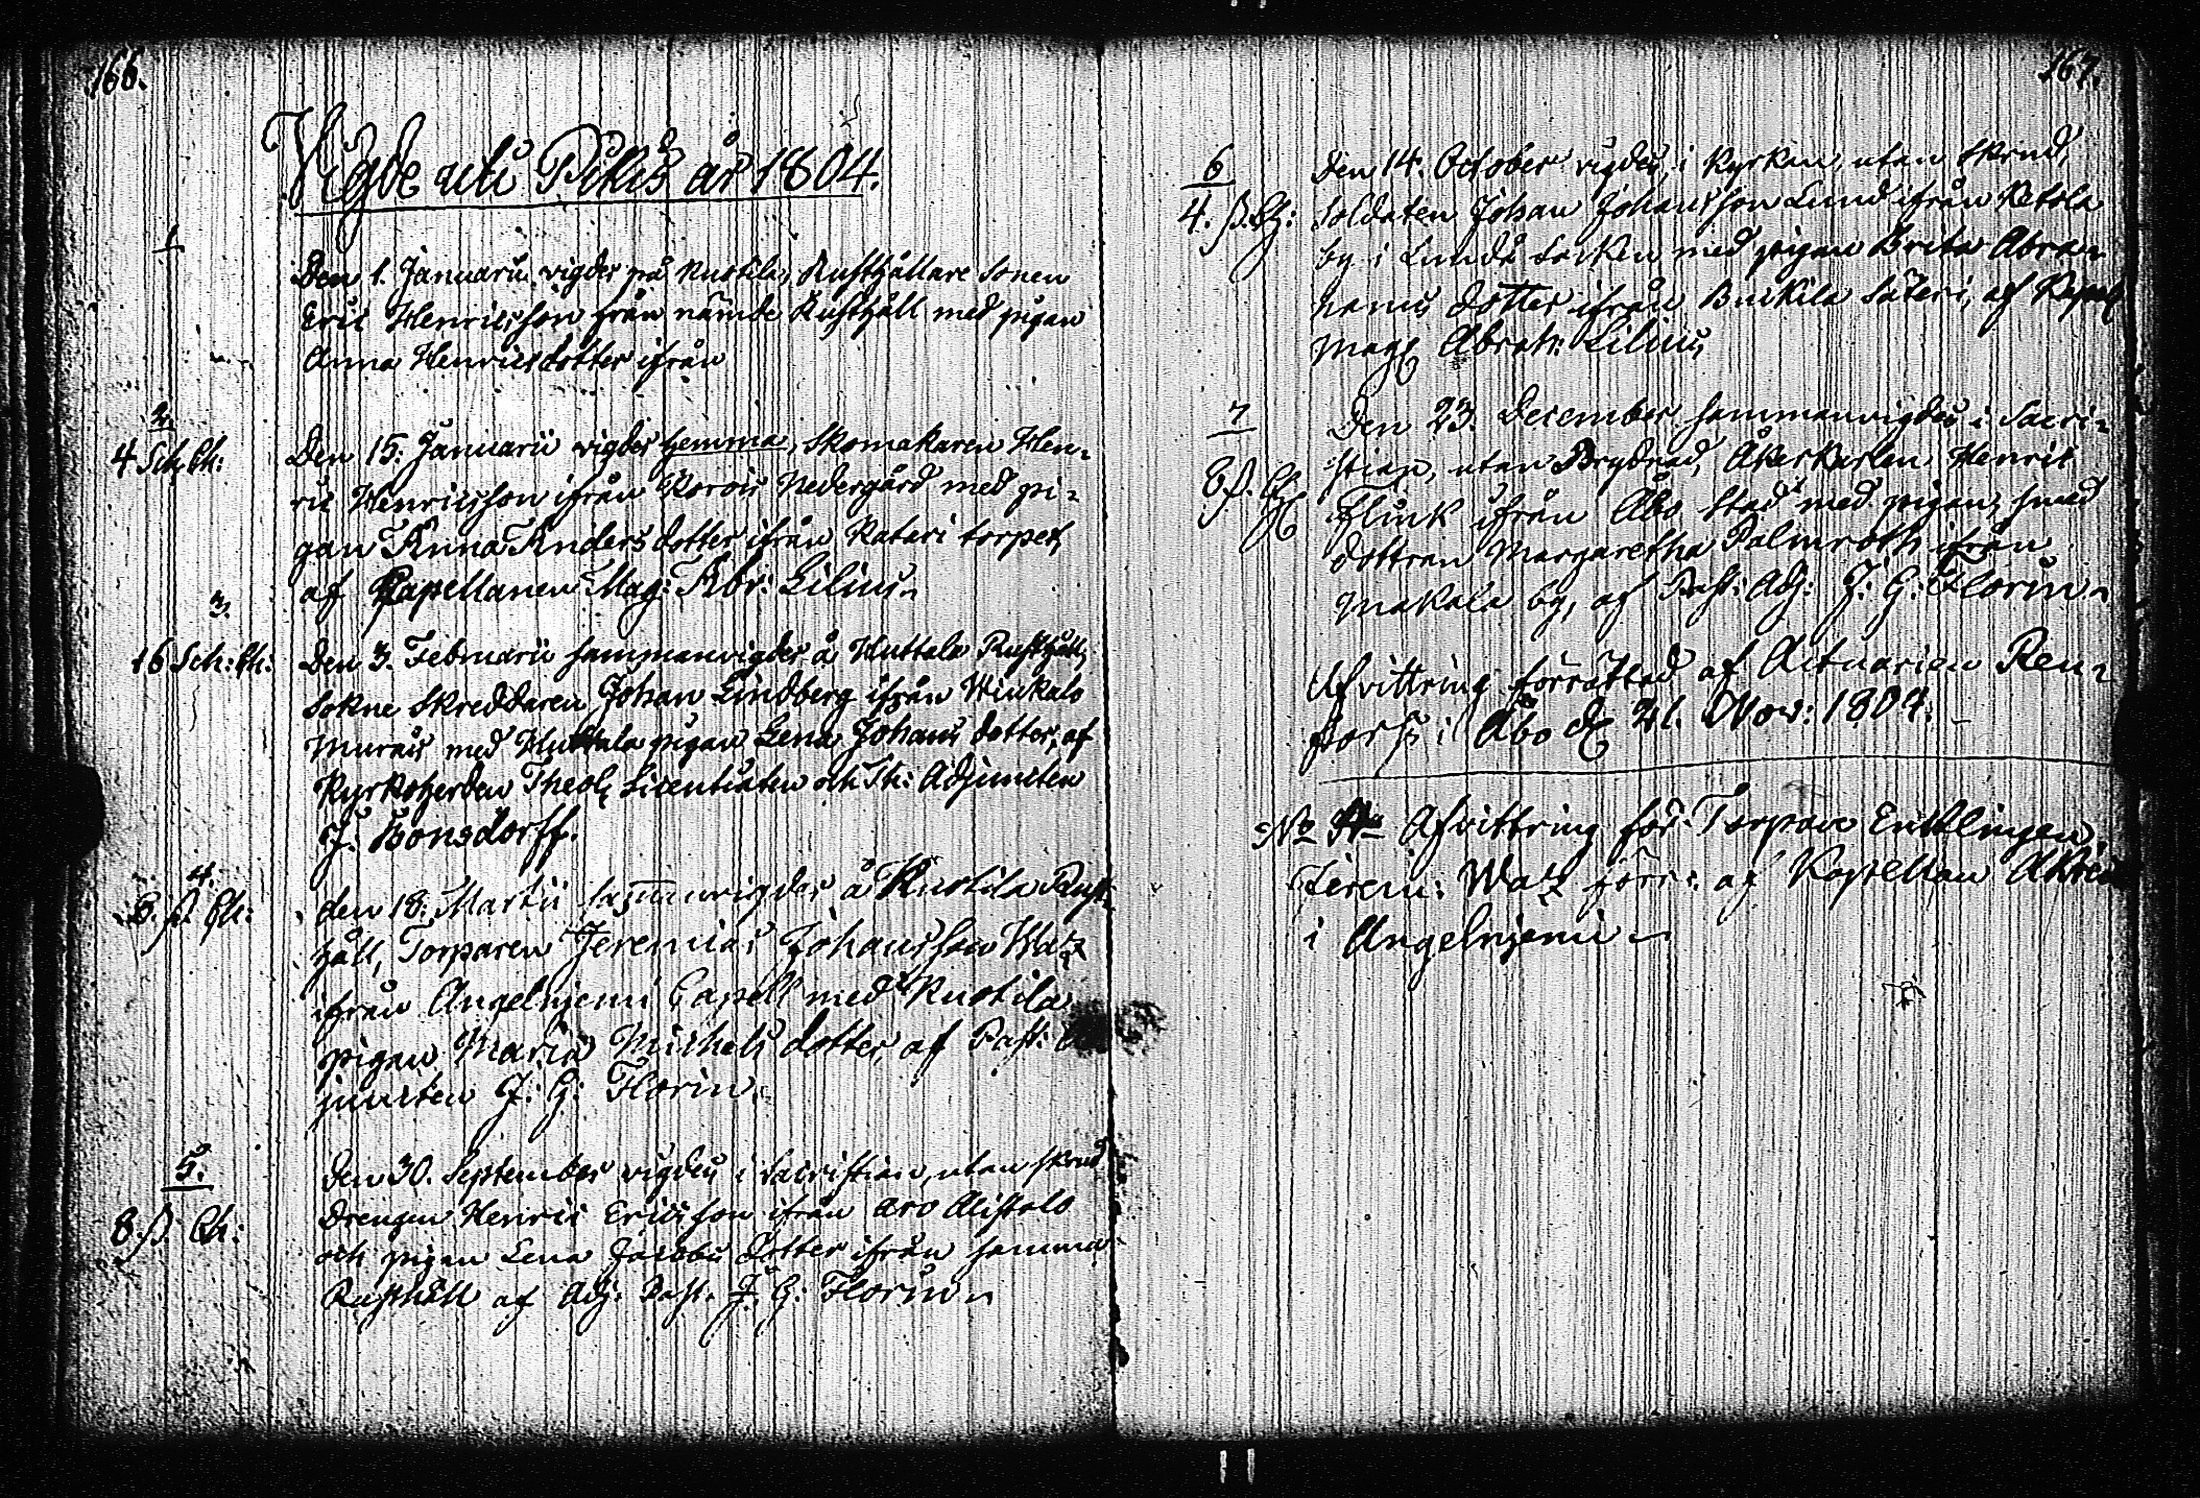 166.
Vigde uti Pikis år 1804.
1
Den 1. Januarii vigdes på Kustila, Rusthållare Sonen
Eric Henricsson från nämde Rusthåll med pigan
Anna Henricsdotter ifrån
2
4 Sch. Ch:
Den 15. Januarii vigdes hemma, Skomakaren Hen-
ric Henricsson ifrån Korois Nedergård med pi-
gan Anna Anders dotter ifrån Katari torpet,
af Capellanen Mag: Abr: Lilius
3.
16 Sch: Ch:
Den 3. Februarii sammanvigdes å Huttala Rusthåll,
Sokne Skreddaren Johan Lindberg ifrån
med Huttala pigan Lena Johans dotter, af
Kyrkoherden Theol. Licentiaten och Th: Adjuncten
J. Bonsdorff.
4.
8. ß. Ch:
den 18. Martii sammanvigdes å Kustila Rust-
håll, Torparen Jeremias Johansson Watz
ifrån Angelniemi Capell med Kustila
pigan Maria Michels dotter, af Past:
juncten J: G: Florin.
5.
8. ß. Ch:
den 30. September vigdes i Sacristian, utan skrud
Drengen Henric Ericsson ifrån Aro Alistalo
och pigan Lena Jacobs dotter ifrån samma
Rusthåll af Adj. Past. J. G: Florin
167.
6
4. ß. Ch:
Den 14. October vigdes, i Kyrkan, utan skrud,
Soldaten Johan Johansson Lund ifrån Ketola
by i Lundå Socken med pigan Brita Abra-
hams dotter ifrån Säteri, af Kapel
Mag Abrah: Lilius
7
8 ß. Ch
Den 23. December sammanvigdes i Sacri-
stian, utan Brydnad, Åkerkarlen Henric
Flink ifrån Åbo Stad med pigan, smed
dottran Margaretha Palmroth ifrån
Makala by, af Past: Adj: J: G: Florin
Afvittring förrättad af Actuarien Ren-
fors i Åbo d 21. Nov: 1804.
No 4 Afvittring för Torpare Enklingen
Jerem: Watz förr: af Kapellan
i Angelniemi